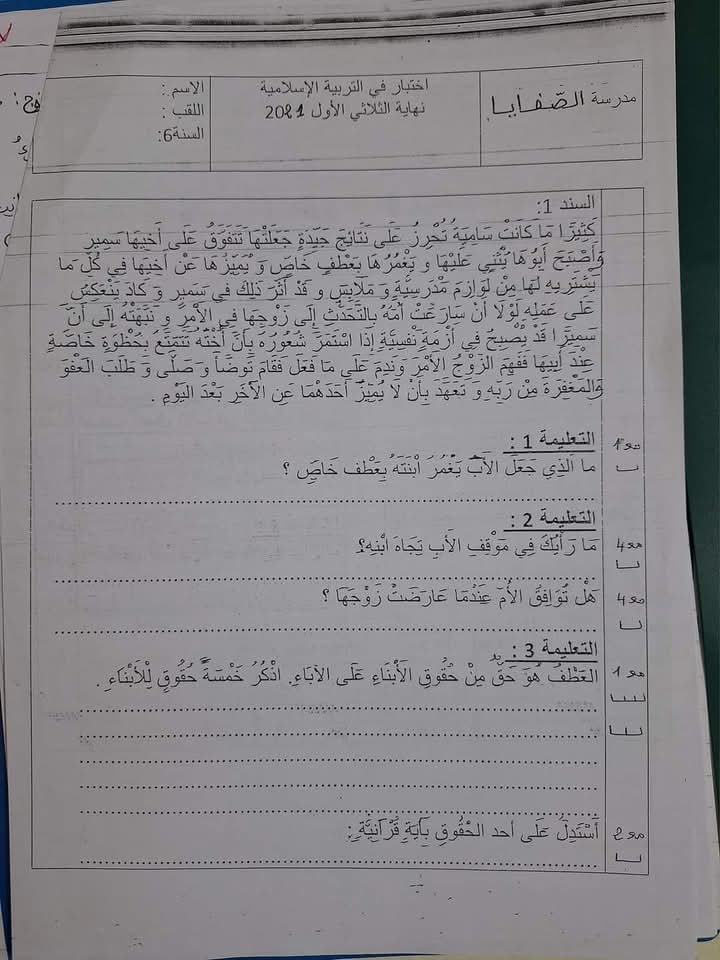 مدرسة الصّفايا
اختبار في التربية الإسلامية
نهاية الثلاثي الأول 2021
الاسم :
اللقب :
السنة6:
السند 1:
كَثِيرًا مَا كَانَتْ سَامِيَةُ تُحْرِزُ عَلَى نَتَائِجَ جَيِّدَةٍ جَعَلَتْهَا تَتَفَوَّقُ عَلَى أَخِيهَا سَمِيرٍ
وَأَصْبَحَ أَبُوهَا يُثْنِي عَلَيْهَا و يَغْمُرُهَا بِعَطْفٍ خَاصٍّ وَ يُمَيِّزُهَا عَنْ أَخِيهَا فِي كُلِّ مَا
يَشْتَرِيهِ لَهَا مِنْ لَوَازِمَ مَدْرَسِيَّةٍ وَ مَلَابِسَ و قَدْ أَثَّرَ ذَلِكَ فِي سَمِيرٍ وَ كَادَ يَنْعَكِسُ
عَلَى عَمَلِهِ لَوْلَا أَنْ سَارَعَتْ أُمُّهُ بِالتَّحَدُّثِ إِلَى زَوْجِهَا فِي الأَمْرِ وَ نَبَّهَتْهُ إِلَى أَنَّ
سَمِيرًا قَدْ يُصْبِحُ فِي أَزْمَةٍ نَفْسِيَّةٍ إِذَا اسْتَمَرَّ شُعُورُهُ بِأَنَّ أُخْتَهُ تَتَمَتَّعُ بِحُظْوَةٍ خَاصَّةٍ
عِنْدَ أَبِيهَا فَفَهِمَ الزَّوْجُ الأَمْرَ وَنَدِمَ عَلَى مَا فَعَلَ فَقَامَ تَوَضَّأَ وَ صَلَّى وَ طَلَبَ العَفْوَ
وَالمَغْفِرَةَ مِنْ رَبِّهِ وَ تَعَهَّدَ بِأَنْ لَا يُمَيِّزَ أَحَدَهُمَا عَنِ الآخَرِ بَعْدَ اليَوْمِ .
التعليمة 1 :
مع1
مَا الَّذِي جَعَلَ الأَبَ يَغْمُرُ ابْنَتَهُ بِعَطْف خَاصٍّ ؟
التعليمة 2 :
مَا رَأْيُكَ فِي مَوْقِفِ الأَبِ تِجَاهَ ابْنِهِ؟
مع4
هَلْ تُوَافِقُ الأُمَّ عِنْدَمَا عَارَضَتْ زَوْجَهَا ؟
مع4
التعليمة 3 :
العَطْفُ هُوَ حَقٌّ مِنْ حُقُوقِ الأَبْنَاءِ عَلَى الآبَاءِ. اذْكُرْ خَمْسَةَ حُقُوقٍ لِلْأَبْنَاءِ .
مع1
أَسْتَدِلُّ عَلَى أحد الحُقُوقِ بِآيَةٍ قُرْآنِيَّةٍ :
مع2